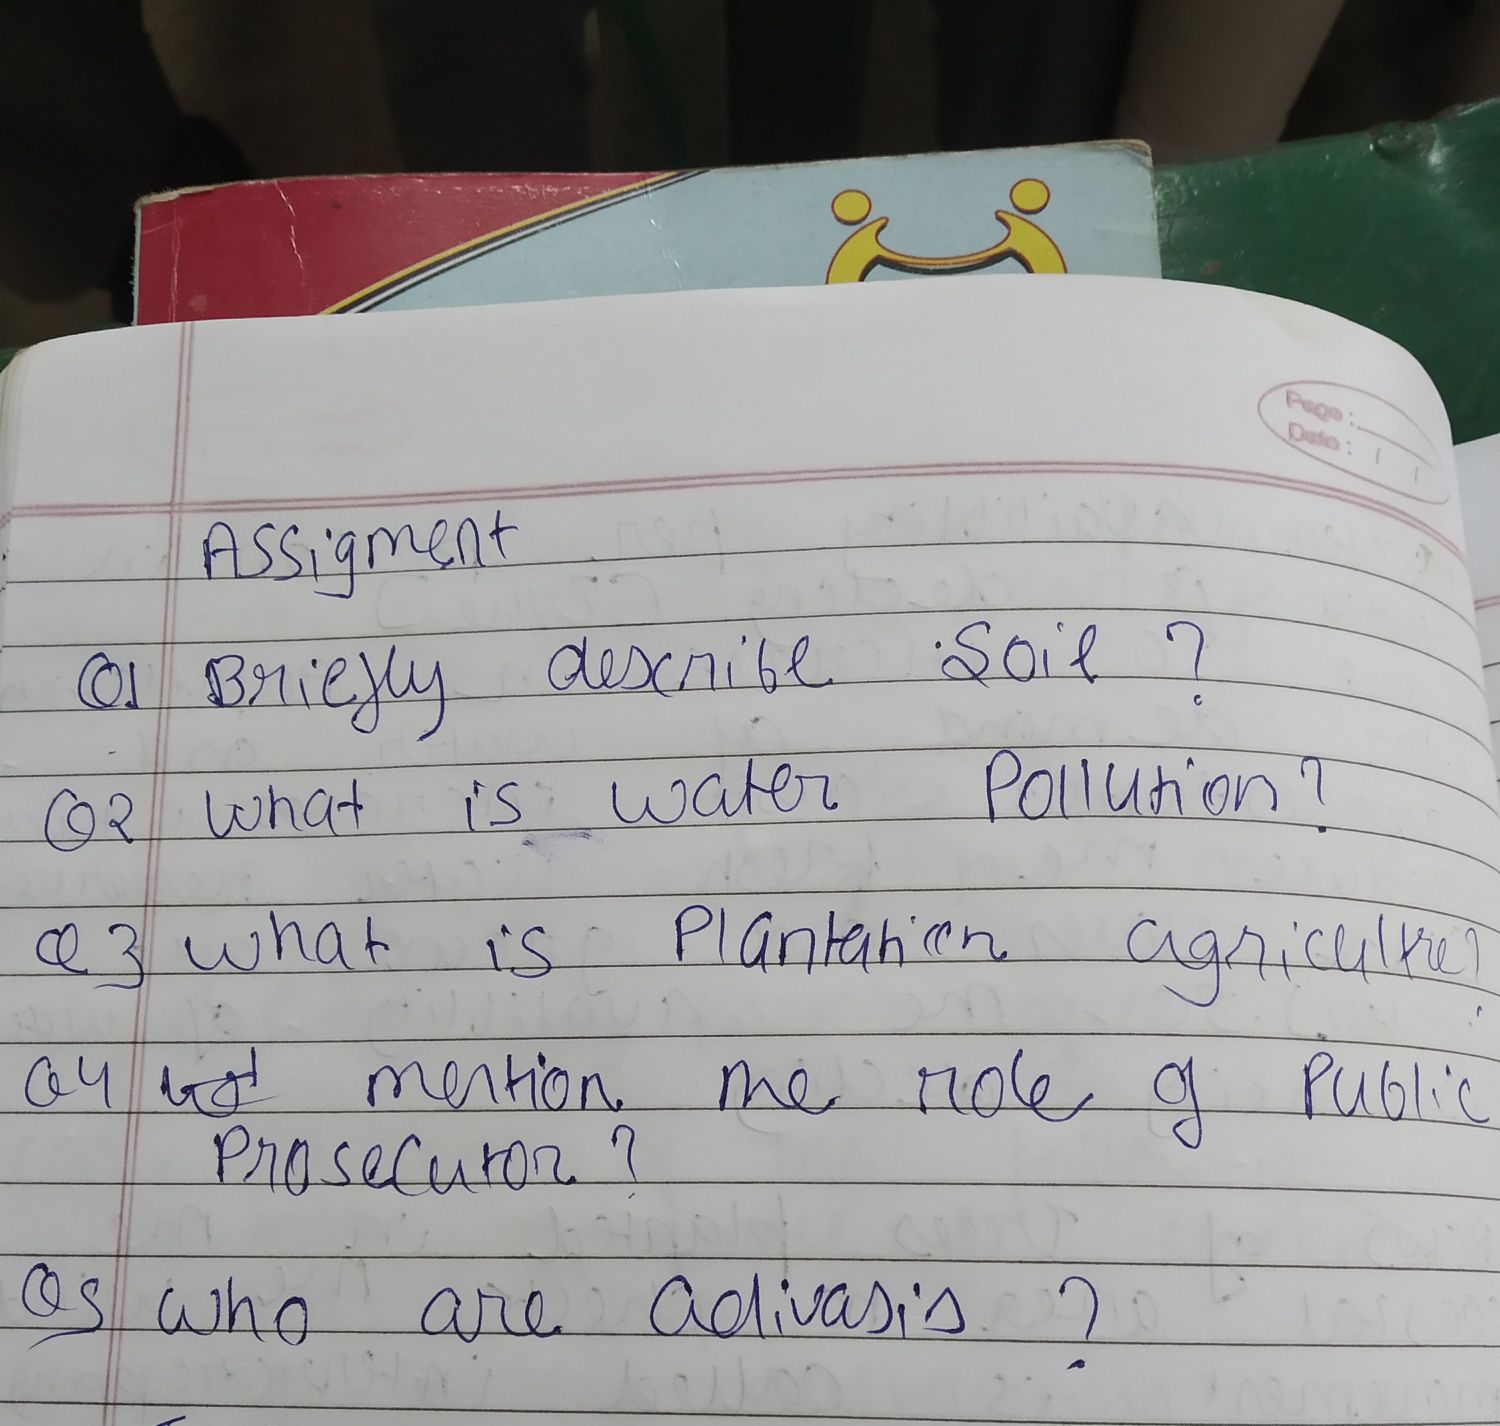 Page :
Date :
Assigment
Q1 Briefly describe Soil ?
Q2 what is water Pollution?
Q3 what is Plantation agricultre?
Q4 mention the role of Public
Prosecutor ?
Q5 who are adivasis ?